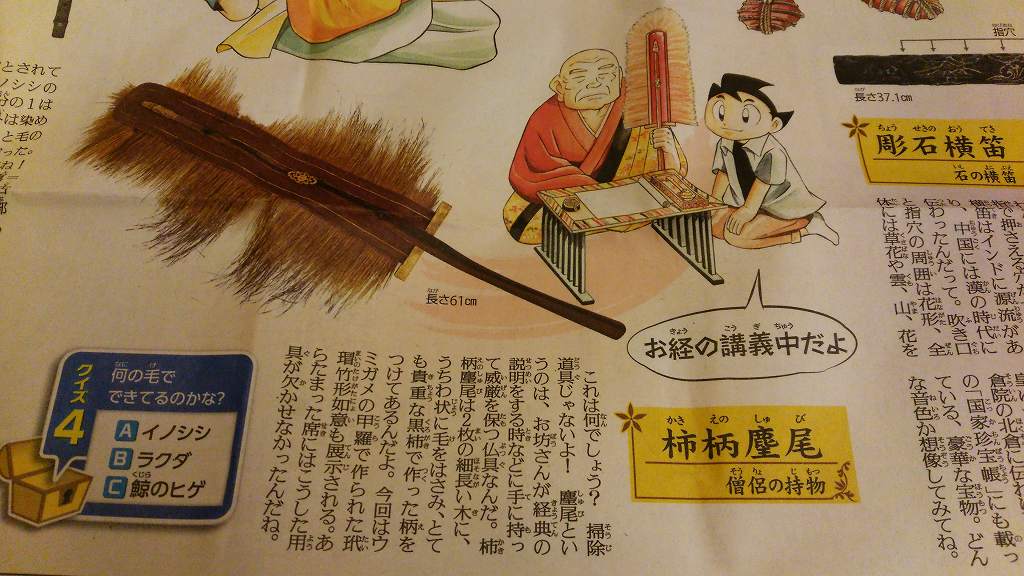 指穴
長さ37.1cm
彫石横笛
ちょうせきのおうてき
石の横笛
いしのよこぶえ
で押さえるんだ
横笛はインドに源流があ
り、中国には漢の時代に
伝わったんだって。吹き口
と指穴の周囲は花形、全
体には草花や雲、山、花を
倉院の北倉に伝わ
の「国家珍宝帳」にも載っ
ている、豪華な宝物。どん
な音色か想像してみてね。
お経の講義中だよ
きょう こうぎちゅう
長さ61cm
柿柄麈尾
かきえのしゅび
僧侶の持物
そうりょ じもつ
これは何でしょう? 掃除
道具じゃないよ! 麈尾とい
うのは、お坊さんが経典の
説明をする時などに手に持っ
て威厳を保つ仏具なんだ。柿
柄麈尾は2枚の細長い木に、
うちわ状に毛をはさみ、とて
も貴重な黒柿で作った柄を
つけてあるんだよ。今回はウ
ミガメの甲羅で作られた玳
瑁竹形如意も展示される。あ
らたまった席にはこうした用
具が欠かせなかったんだね。
クイズ4
何の毛で
できてるのかな?
A イノシシ
B ラクダ
C 鯨のヒゲ
とされて
ノシシの
分の1は
は染め
と毛の
った。
ね!